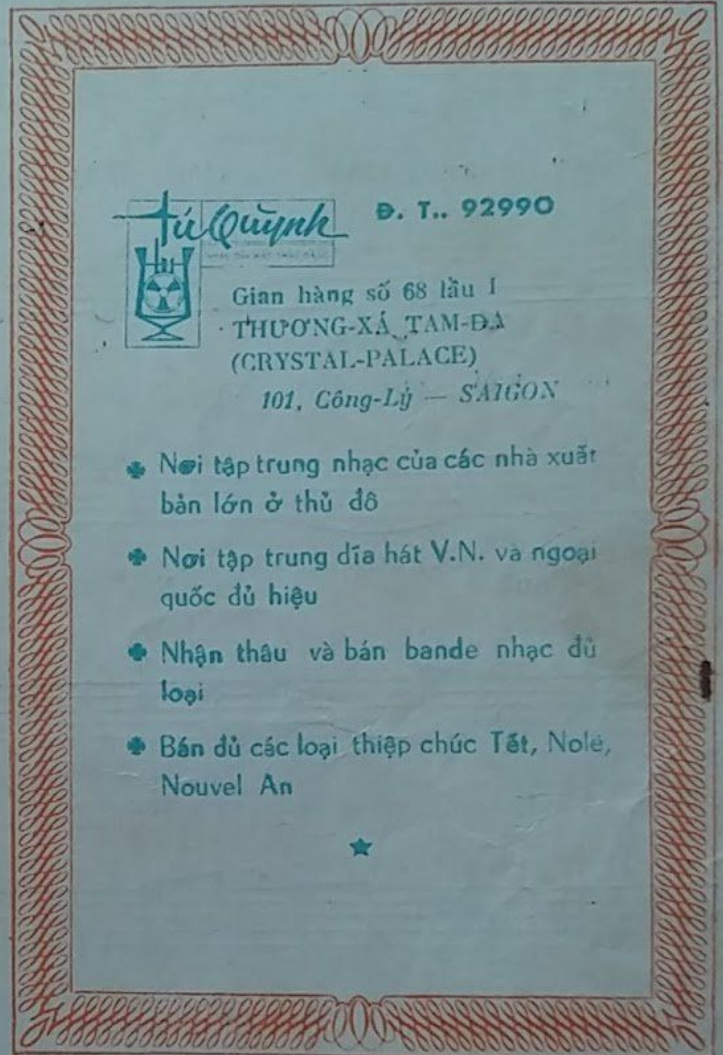 Tú Quỳnh Đ. T.. 92990
Gian hàng số 68 lầu I
THƯƠNG-XÁ TAM-ĐA
(CRYSTAL-PALACE)
101, Công-Lý — SAIGON
Nơi tập trung nhạc của các nhà xuất
bản lớn ở thủ đô
Nơi tập trung dĩa hát V.N. và ngoại
quốc đủ hiệu
Nhận thâu và bán bande nhạc đủ
loại
Bán đủ các loại thiệp chúc Tết, Nolë,
Nouvel An